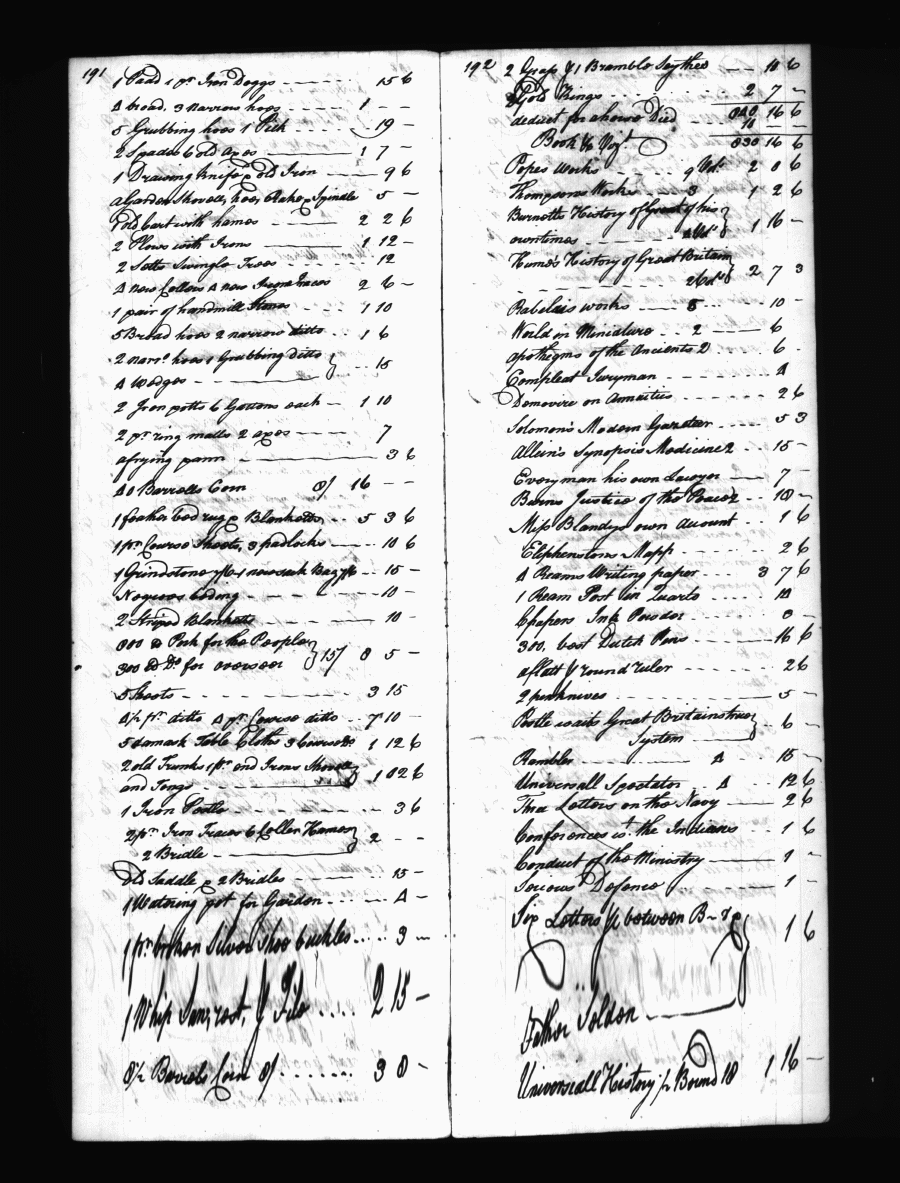 191
1 Spad 1 pr. Iron Doggs - - - - 15 6
4 broad, 3 Narrow hoes - - - 1 - -
5 Grubbing hoes 1 Pick - - - 19 -
2 Spades 6 old axes 1 7 -
1 Drawing knife & old Iron 9 6
a Garden Shovell, hoe, Rake & Spindle 5 -
1 old Cart with hames 2 2 6
2 Plows with Irons 1 12 -
2 Setts Swingle Trees - - - 12
4 new Collers 4 new Iron traces 2 6 -
1 pair of handmill Stones 1 10
5 Broad hoes 2 narrow ditto 1 6
2 narr. hoes 1 Grubbing ditto
4 Wedges - - - 15
2 Iron potts 6 Gallons each 1 10
2 pr. ring malls 2 axes 7
a frying pann - 3 6
40 Barrells Corn 8/ 16 - -
1 feather bed rug & Blanketts - - 5 3 6
1 pr. Course Sheets, 3 padlocks 10 6
1 Grindstone 1 new sack Bag - - 15 -
Negroes beding - - - 10 -
2 Striped Blanketts 10 -
800 lb Pork for the People
300 lb Do. for overseer 15/ 8 5 -
5 Sheets - - - 3 15
4 pr. ditto 4 pr. Course ditto - - 7 10 -
5 damask Table Cloths 3 Course Do. 1 12 6
2 old Trunks 1 pr. end Irons Shovell
and Tongs - - - 1 02 6
1 Iron Pestle - - - 3 6
2 pr. Iron Traces 6 Coller Hames
2 Bridle 2 - -
Old Saddle & 2 Bridles 15 -
1 Watering pot for Garden - - - 4 -
1 pr. broken Silver Shoe buckles - - - 3 -
1 Whip Saw, rest, & File - - - 2 15 -
8 1/2 Barrels Corn 8/ - - - 3 8 -
192
2 Grass & 1 Bramble Scythes 10 6
2 Gold Rings - - - 2 7 -
840 16 6
deduct for a horse Died - 10 -
Book &c Vizt. 830 16 6
Popes Works 9 Vol. 2 8 6
Thompsons Works - - 3 1 2 6
Burnetts History of Great of his
own times - - - 4 Vol. 1 16 -
Hume's History of Great Britain
- - - 2 Vol. 2 7 3
Rabelais works 5 10 -
World in Miniature - - 2 6 -
apothegms of the Ancients 2 6 -
Compleat Juryman - - - 4
Demoivre on Annuities - - - 2 6
Solomon's Modern Gazetteer - - 5 3
Allein's Synopsis Medicine 2 - - 15 -
Every man his own Lawyer 7 -
Burns Justice of the Peace 2 - - 18 -
Miss Blandys own Account - - - 1 6
Elphenstons Mapp - - - 2 6
4 Reams Writing paper - - - 3 7 6
1 Ream Post in Quarto - - - 18
6 papers Ink Powder - - - 3 -
300, best Dutch Pens - - - 16 6
a flatt & round ruler - - - 2 6
2 penknives - - - 5 -
Postlewaits Great Britains true
System 6 -
Rambler 4 - - 15 -
Universall Spectator - - 4 - - 12 6
Three Letters on the Navy 2 6
Conferences wt. the Indians - - 1 6
Conduct of the Ministry 1 -
Serious Defence - - - 1 -
Six Letters between B- & 1 6
Father Seldon
Universall History pr Bound 18 1 16 -